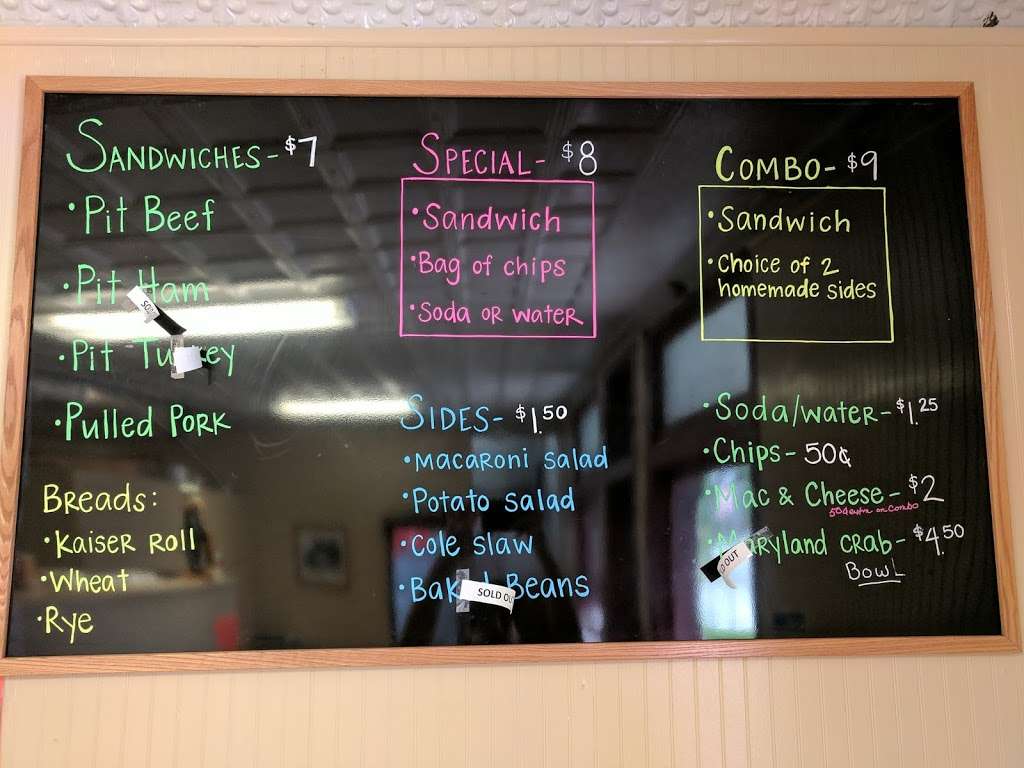 SANDWICHES- $7
• Pit Beef
• Pit Ham
• Pit Turkey
• Pulled PORK
Breads:
• Kaiser Roll
• Wheat
• Rye
SPECIAL- $8
• Sandwich
• Bag of chips
• Soda or water
SIDES- $1.50
• Macaroni salad
• Potato salad
• Cole slaw
• Baked Beans
SOLD OU
COMBO- $9
• Sandwich
• Choice of 2
homemade sides
• Soda/water- $1.25
• Chips- 50¢
• Mac & Cheese- $2
50¢ extra on combo
• Maryland crab- $4.50
BOWL
D OUT